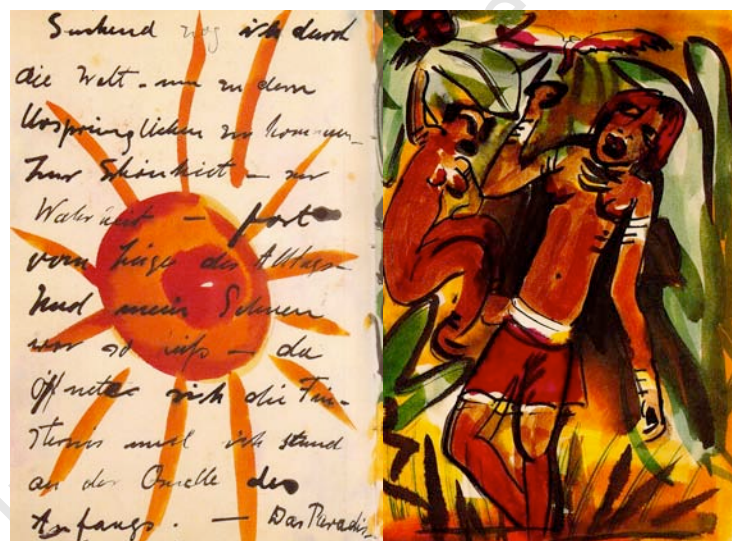 Suchend zog ich durch
die Welt – um zu dem
Ursprünglichen zu kommen –
Zur Schönheit – zur
Wahrheit – fort
vom Luge des Alltags
Und mein Sehnen
war so tief – da
öffnete sich die Fin-
sternis und ich stand
an der Quelle des
Anfangs. – Das Paradis